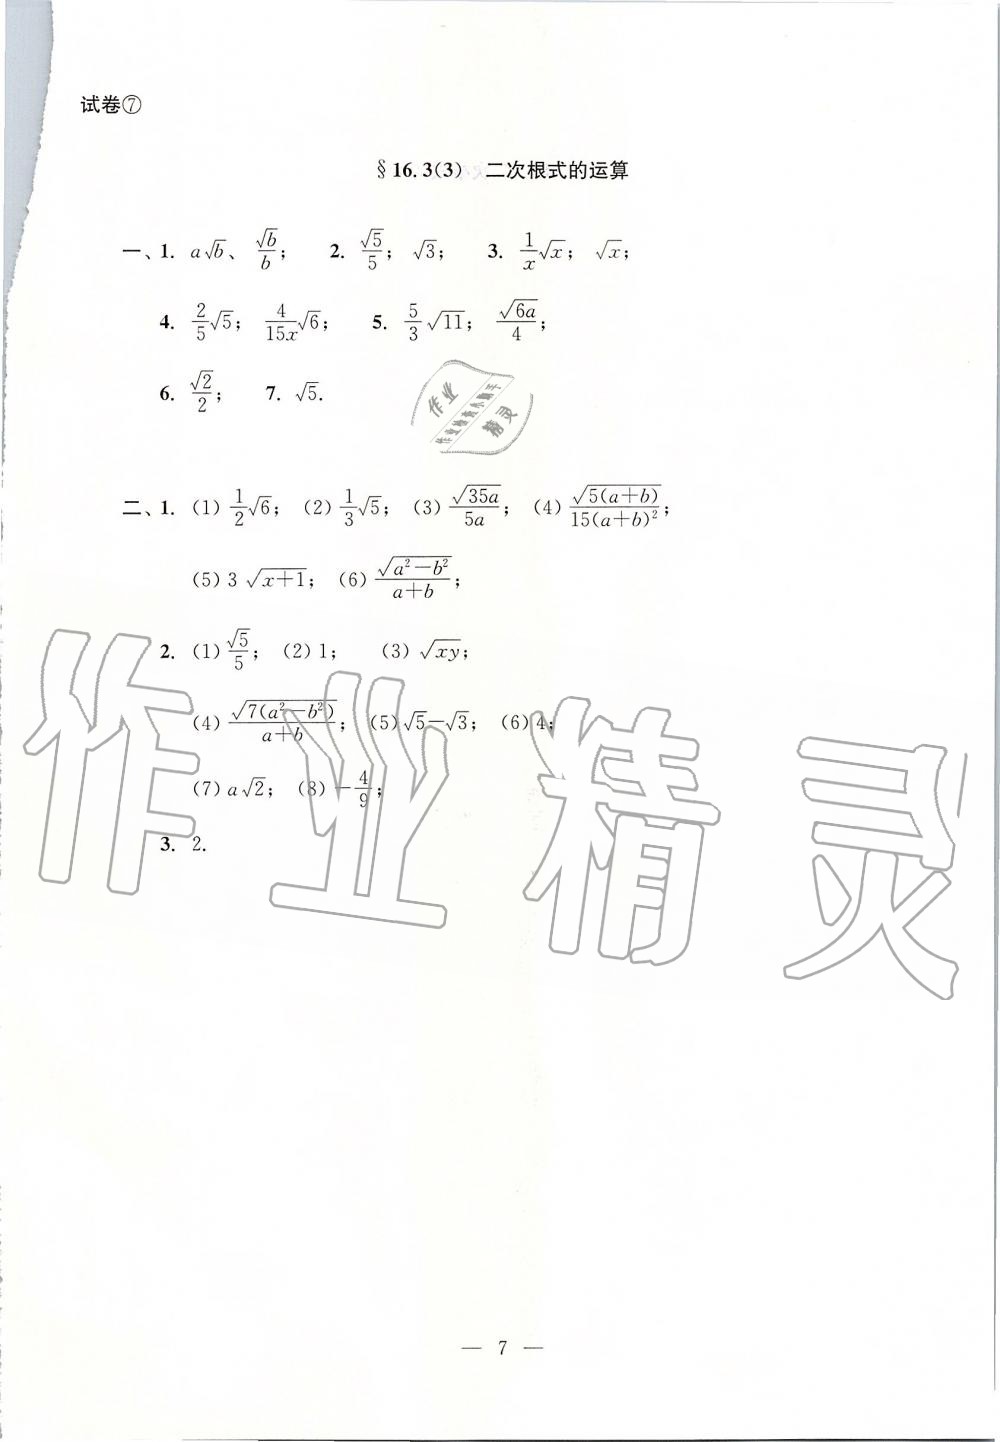 试卷⑦
§16.3(3) 二次根式的运算
一、1. a√b、 √b/b; 2. √5/5; √3; 3. 1/x √x; √x;
4. 2/5 √5; 4/15x √6; 5. 5/3 √11; √6a/4;
6. √2/2; 7. √5.
作业
作业检查小助手
精灵
二、1. (1) 1/2 √6; (2) 1/3 √5; (3) √35a/5a; (4) √5(a+b)/15(a+b)²;
(5) 3 √x+1; (6) √a²−b²/a+b;
2. (1) √5/5; (2) 1; (3) √xy;
(4) √7(a²−b²)/a+b; (5) √5−√3; (6) 4;
(7) a√2; (8) −4/9;
3. 2.
作业精灵
— 7 —